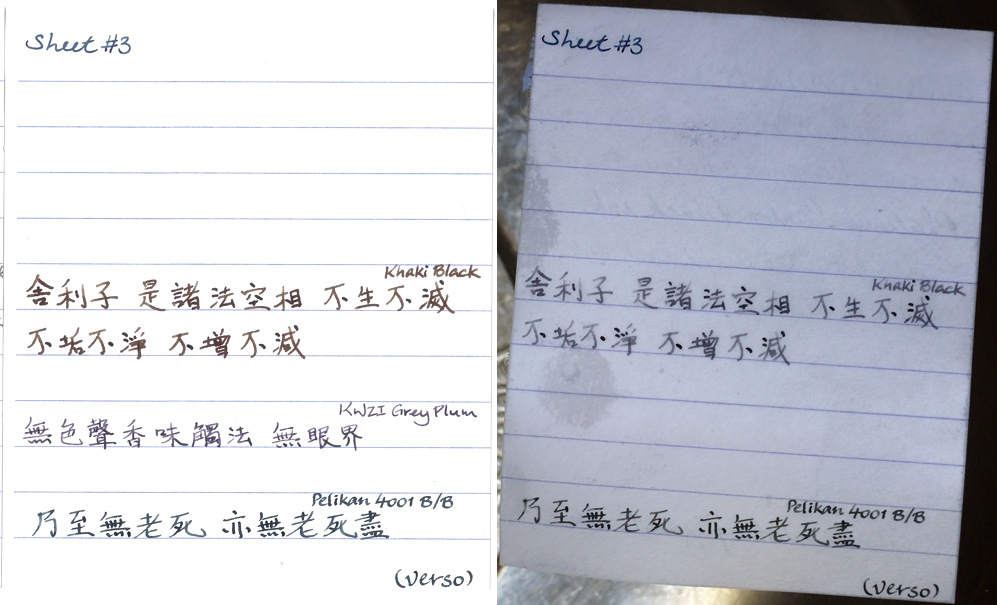 Sheet #3
Khaki Black
舍利子 是諸法空相 不生不滅
不垢不淨 不增不減
KWZI Grey Plum
無色聲香味觸法 無眼界
Pelikan 4001 B/B
乃至無老死 亦無老死盡
(verso)
Sheet #3
Khaki Black
舍利子 是諸法空相 不生不滅
不垢不淨 不增不減
Pelikan 4001 B/B
乃至無老死 亦無老死盡
(verso)